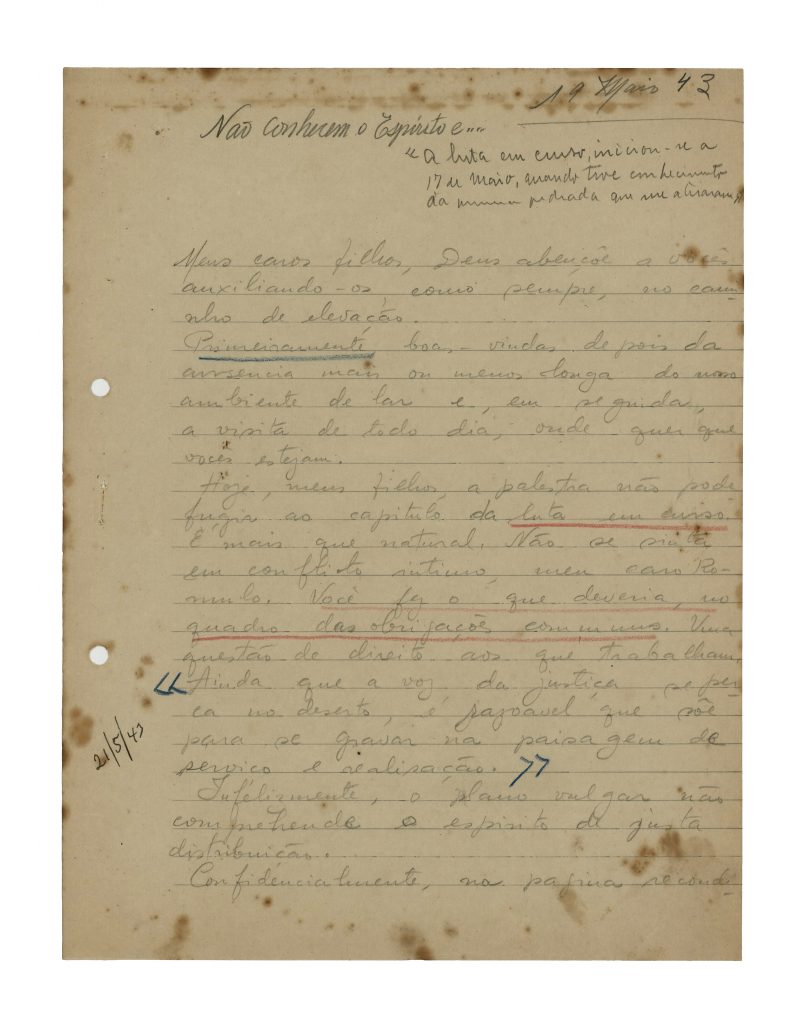 19 Maio 43
Não conhecem o Espírito e....
"A luta em curso, iniciou-se a
17 de Maio, quando tive conhecimento
da primeira pedrada que me atiraram"
Meus caros filhos, Deus abençôe a vocês
auxiliando-os, como sempre, no cami-
nho de elevação.
Primeiramente boas-vindas depois da
ausencia mais ou menos longa do nosso
ambiente de lar e, em seguida,
a visita de todo dia, onde quer que
vocês estejam.
Hoje, meus filhos, a palestra não pode
fugir ao capitulo da luta em curso.
É mais que natural. Não se sinta
em conflicto intimo, meu caro Ro-
mulo. Você fez o que deveria, no
quadro das obrigações communs. Uma
questão de direito aos que trabalham.
"Ainda que a voz da justiça se per-
ca no deserto, é razoavel que sôe
para se gravar na paisagem de
serviço e realisação."
Infelizmente, o plano vulgar não
comprehende o espirito de justa
distribuição.
Confidencialmente, na pagina recond-
21/5/43